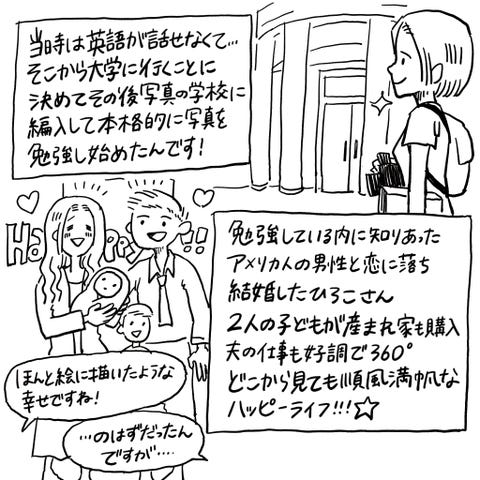 当時は英語が話せなくて…
そこから大学に行くことに
決めてその後写真の学校に
編入して本格的に写真を
勉強し始めたんです!
HaPPY!!
勉強している内に知りあった
アメリカ人の男性と恋に落ち
結婚したひろこさん
2人の子どもが産まれ家も購入
夫の仕事も好調で360°
どこから見ても順風満帆な
ハッピーライフ!!!☆
ほんと絵に描いたような
幸せですね!
…のはずだったん
ですが…